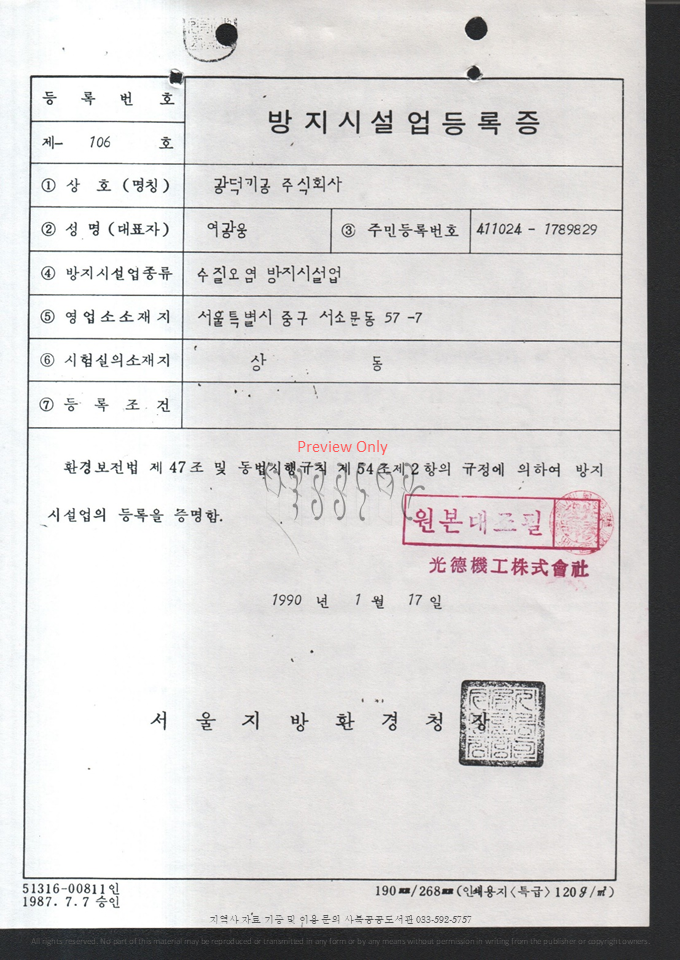 등 록 번 호
방지시설업등록증
제- 106 호
① 상 호 (명칭) 광덕기공 주식회사
② 성 명 (대표자) 여광웅 ③ 주민등록번호 411024 - 1789829
④ 방지시설업종류 수질오염 방지시설업
⑤ 영업소소재지 서울특별시 중구 서소문동 57 -7
⑥ 시험실의소재지 상 동
⑦ 등 록 조 건
Preview Only
환경보전법 제 47 조 및 동법시행규칙 제 54 조제 2 항의 규정에 의하여 방지
시설업의 등록을 증명함.
원본대조필
光德機工株式會社
1990 년 1 월 17 일
서 울 지 방 환 경 청 장
51316-00811인
1987. 7. 7 승인
190㎜/268㎜(인쇄용지<특급>120g/㎡)
지역사 자료 기증 및 이용 문의 사북공공도서관 033-592-5757
All rights reserved. No part of this material may be reproduced or transmitted in any form or by any means without permission in writing from the publisher or copyright owners.